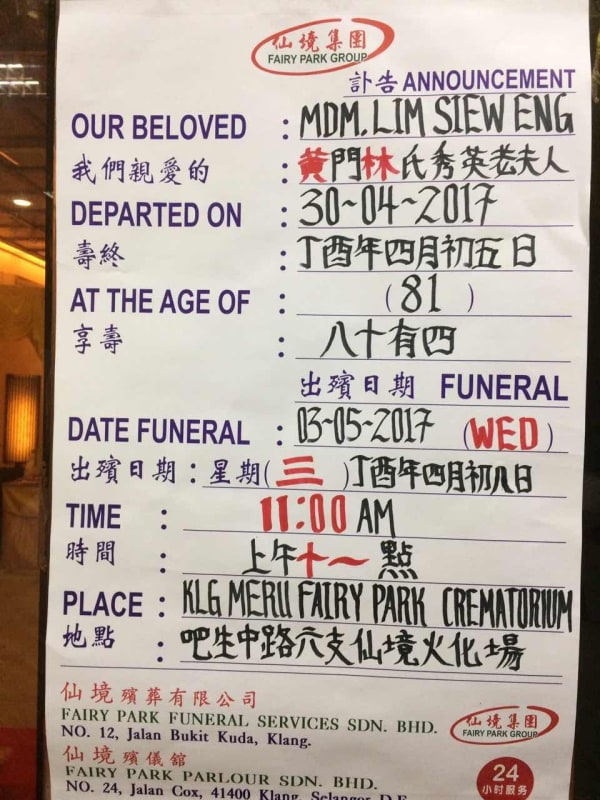 仙境集團
FAIRY PARK GROUP
訃告 ANNOUNCEMENT
OUR BELOVED : MDM. LIM SIEW ENG
我們親愛的 : 黃門林氏秀英老夫人
DEPARTED ON : 30-04-2017
壽終 : 丁酉年四月初五日
AT THE AGE OF : (81)
享壽 : 八十有四
出殯日期 FUNERAL
DATE FUNERAL : 03-05-2017 (WED)
出殯日期 : 星期(三)丁酉年四月初八日
TIME : 11:00 AM
時間 : 上午十一點
PLACE : KLG MERU FAIRY PARK CREMATORIUM
地點 : 吧生中路六支仙境火化場
仙境殯葬有限公司
FAIRY PARK FUNERAL SERVICES SDN. BHD.
NO. 12, Jalan Bukit Kuda, Klang.
仙境集團
FAIRY PARK GROUP
仙境殯儀館
FAIRY PARK PARLOUR SDN. BHD.
NO. 24, Jalan Cox, 41400 Klang, Selangor D.E.
24
小时服务